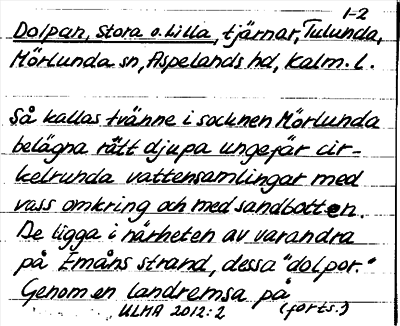 1-2
Dolpan, Stora o. Lilla, tjärnar, Tulunda,
Mörlunda sn, Aspelands hd, Kalm. l.
Så kallas tvänne i socknen Mörlunda
belägna rätt djupa ungefär cir-
kelrunda vattensamlingar med
vass omkring och med sandbotten.
De ligga i närheten av varandra
på Emåns strand, dessa "dolpor."
Genom en landremsa på
(forts.)
ULMA 2012:2